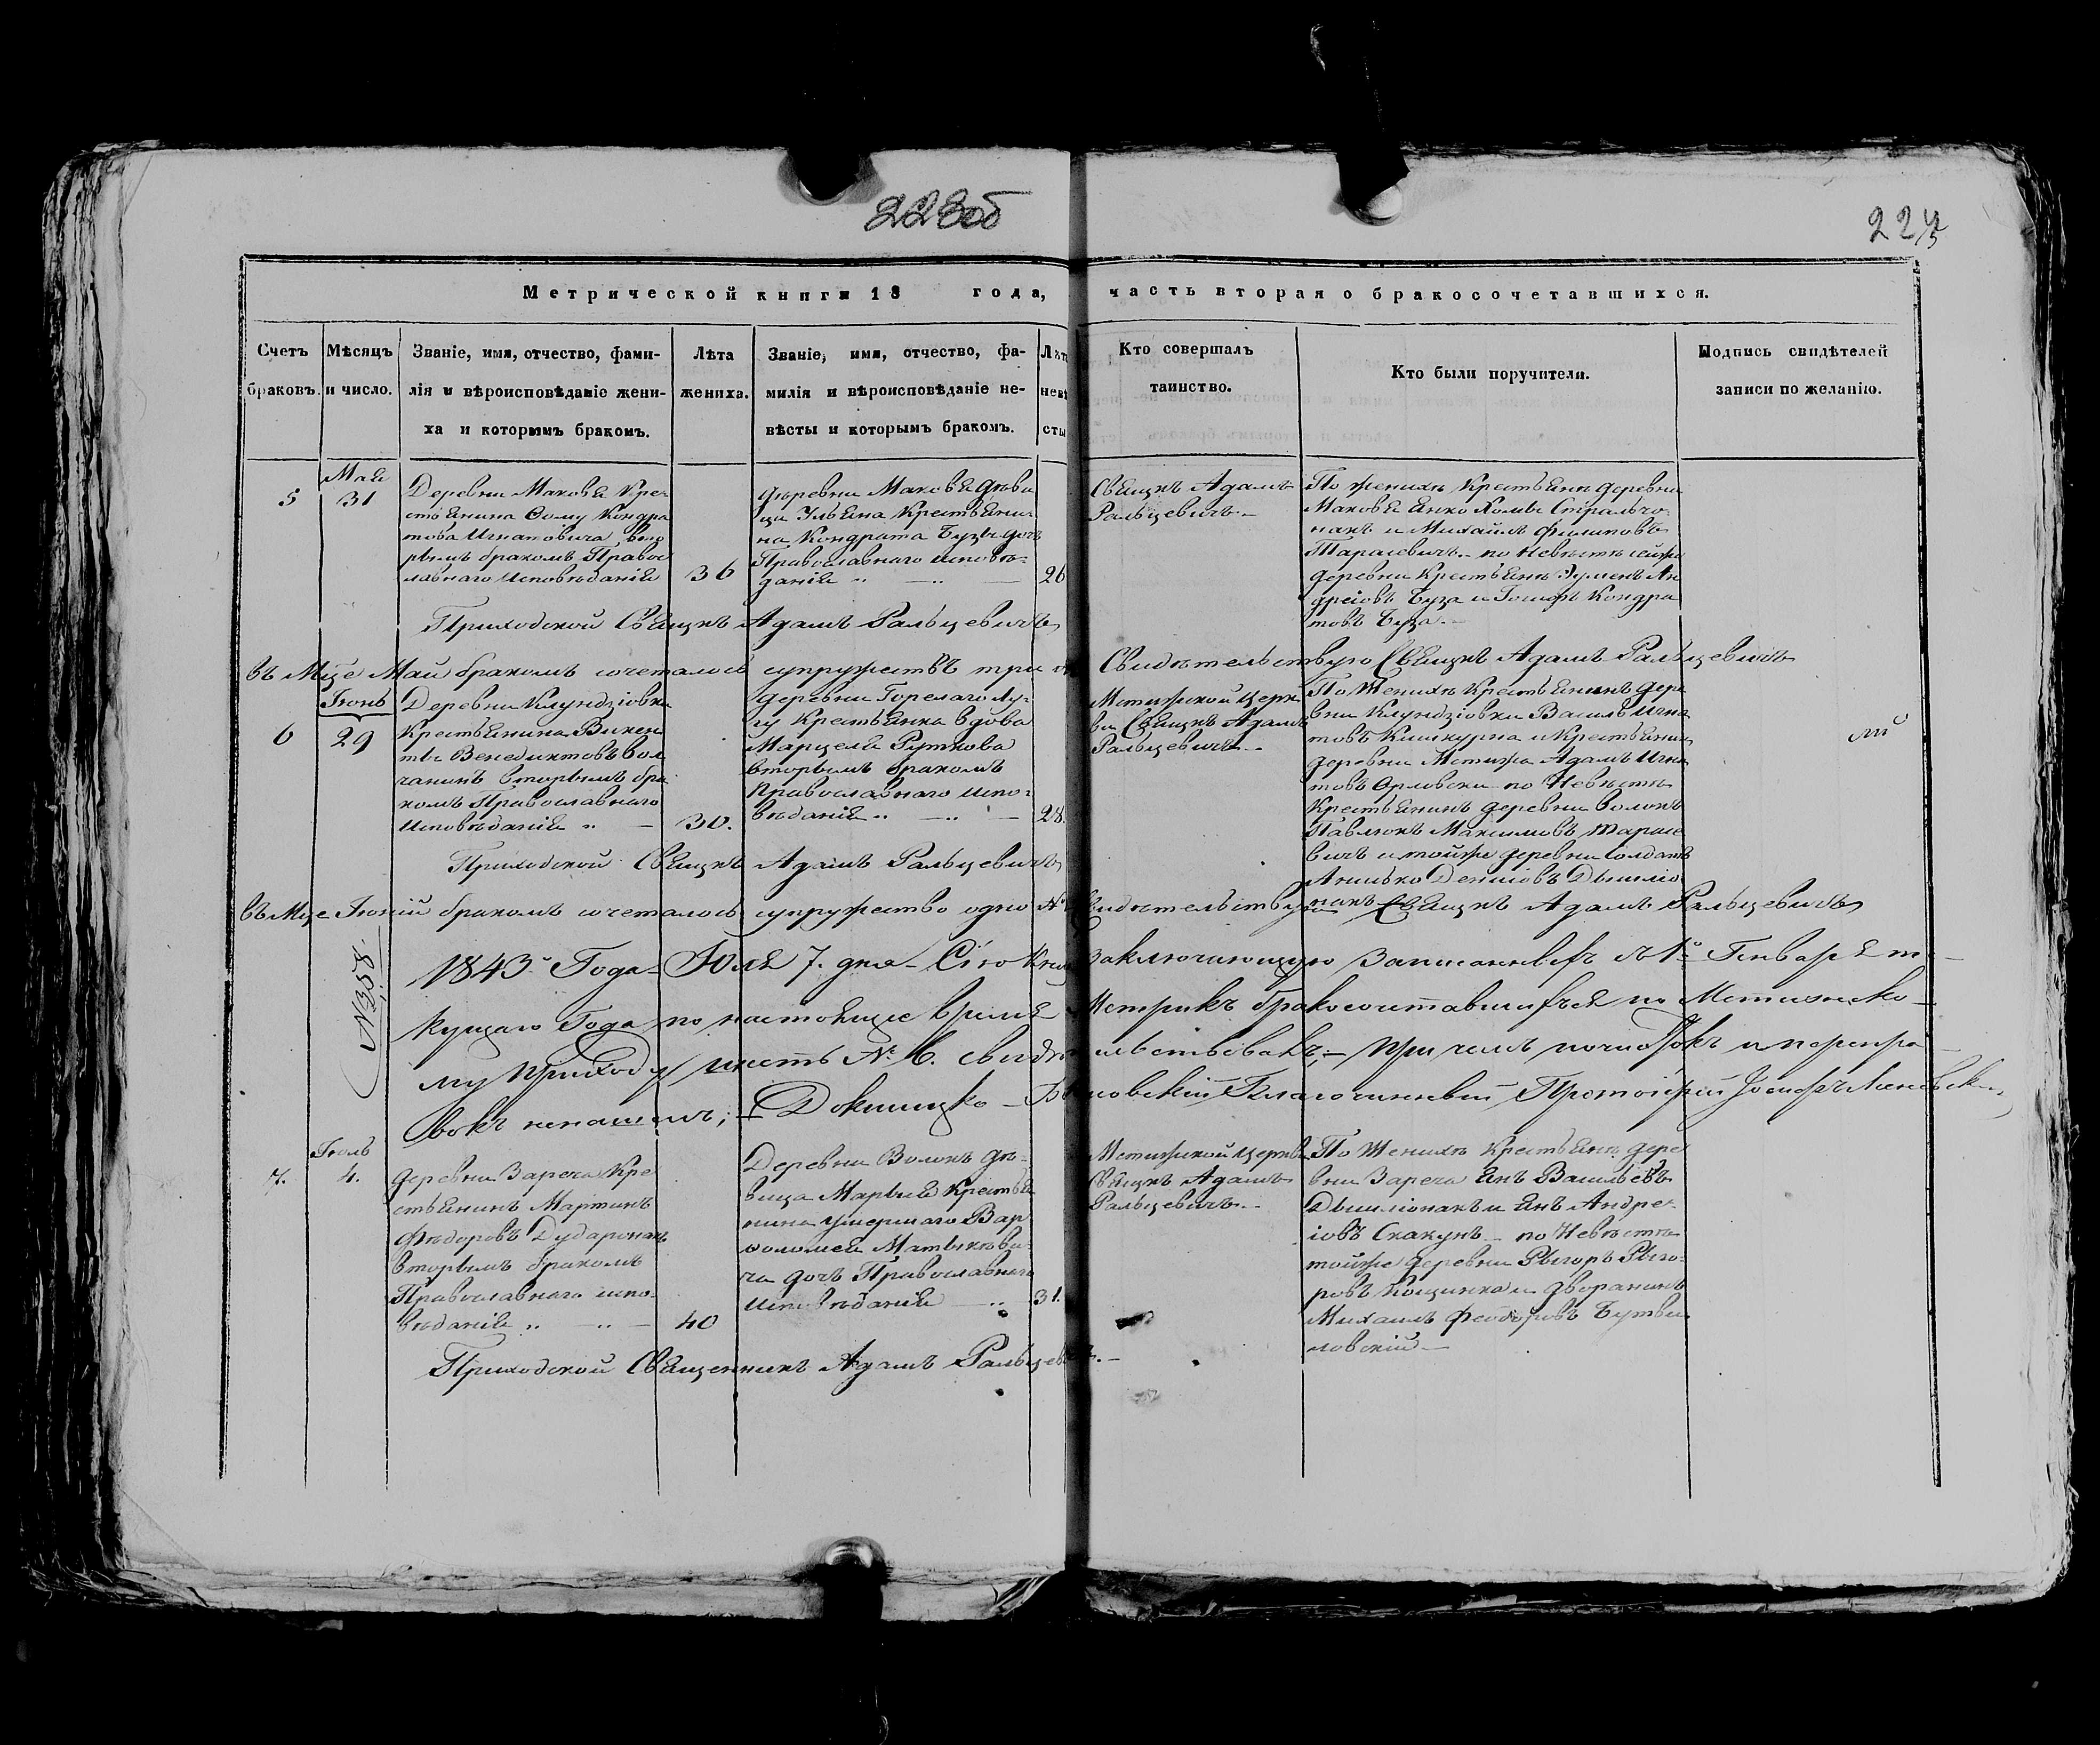 223об
224
Метрической книги 18 года, часть вторая о бракосочетавшихся.
Счетъ браковъ.
Мѣсяцъ и число.
Званіе, имя, отчество, фами-
лія и вѣроисповѣданіе жени-
ха и которымъ бракомъ.
Лѣта
жениха.
Званіе, имя, отчество, фа-
милія и вѣроисповѣданіе не-
вѣсты и которымъ бракомъ.
Лѣт
невѣ
сты
Кто совершалъ
таинство.
Кто были поручители.
Подпись свидѣтелей
записи по желанію.
5
Мая
31
Деревни Маковья Кре
стьянина Ѳому Кондра
това Игнатовича, вто
рымъ бракомъ Правос
лавнаго исповѣданія
36
Деревни Маковья дѣви
ца Ульяна Крестьяни
на Кондрата Бузы доч
Православнаго исповѣ-
данія
26
Свящнъ Адамъ
Ральцевичъ.
По женихѣ Крестьянъ деревни
Маковья Янко Хомы Стральчо
накъ и Михайлъ Филиповъ
Тарасевичъ. по Невѣстѣ сейже
деревни Крестьянъ Ян
дреіовъ Буза и Іосифъ Кондра
товъ Буза.
Приходской Свящнъ Адамъ Ральцевичъ
въ Мце Май бракомъ сочеталось супружествъ три
Свидѣтельствую Свящнъ Адамъ Ральцевичъ
6
Іюнь
29
Деревни Клундзіовки
Крестьянина Викен
ты Венедиктовъ Вол
чанинъ вторымъ бра
комъ Православнаго
исповѣданія
30.
Деревни Горелаго Лу-
гу Крестьянка вдова
Марцеля Руткова
вторымъ бракомъ
Православнаго испо-
вѣданія
28.
Мстижской церк
ви Свящнъ Адамъ
Ральцевичъ.
По Женихѣ Крестьянинъ дере
вни Клундзіовки Василь Игна
товъ Кишкурна и Крестьянин
деревни Мстижа Адамъ Игна
товъ Орловски по Невѣстѣ
Крестьянинъ деревни Волокъ
Павлюкъ Максимовъ Тарасе
вичъ и тойже деревни Солдатъ
Анисько Денисовъ Дышлю
накъ
Приходской Свящнъ Адамъ Ральцевичъ
въ Мце Іюній бракомъ сочеталось супружество одно
Свидѣтельствую Свящнъ Адамъ Ральцевичъ
№358.
1843 Года Юля 7. дня Сію Книгу заключающую записанныхъ съ 1го Генваря те
кущаго Года по настоящее время Метрикъ бракосочетавшихъся по Мстижско-
му Приходу шесть №6. свидѣтельствовалъ; при чемъ почистокъ и переправ
вокъ ненашелъ; Докшицко-Борисовскій Благочинный Протоіерей Іосифъ
7.
Іюль
4.
Деревни Зареча Кре
стьянинъ Мартинъ
Ѳедоровъ Дударонакъ
вторымъ бракомъ
Православнаго испо-
вѣданія
40
Деревни Волокъ дѣ-
вица Марыя Крестья
нина умершаго Вар
ѳоломея Матыкеви-
ча дочь Православнаго
исповѣданія
31.
Мстижской церкви
Свящнъ Адамъ
Ральцевичъ.
По Женихѣ Крестьянъ дере
вни Зареча Янъ Васильевъ
Дышліонакъ и Янъ Андре-
іовъ Скакунъ по Невѣстѣ
тойже деревни Рыгоръ Рыго-
ровъ Кощинка и дворанинъ
Михаилъ Феодоровъ Бутви
ловскій
Приходской Священникъ Адамъ Ральцевичъ.